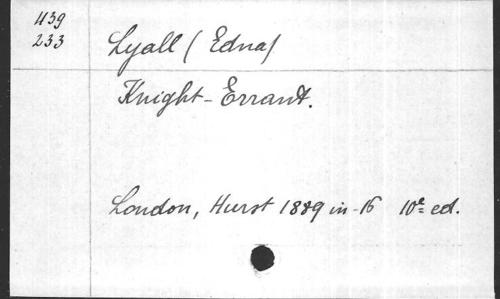 1139
233
Lyall (Edna)
Knight-Errant.
London, Hurst 1889 in-16 10e ed.